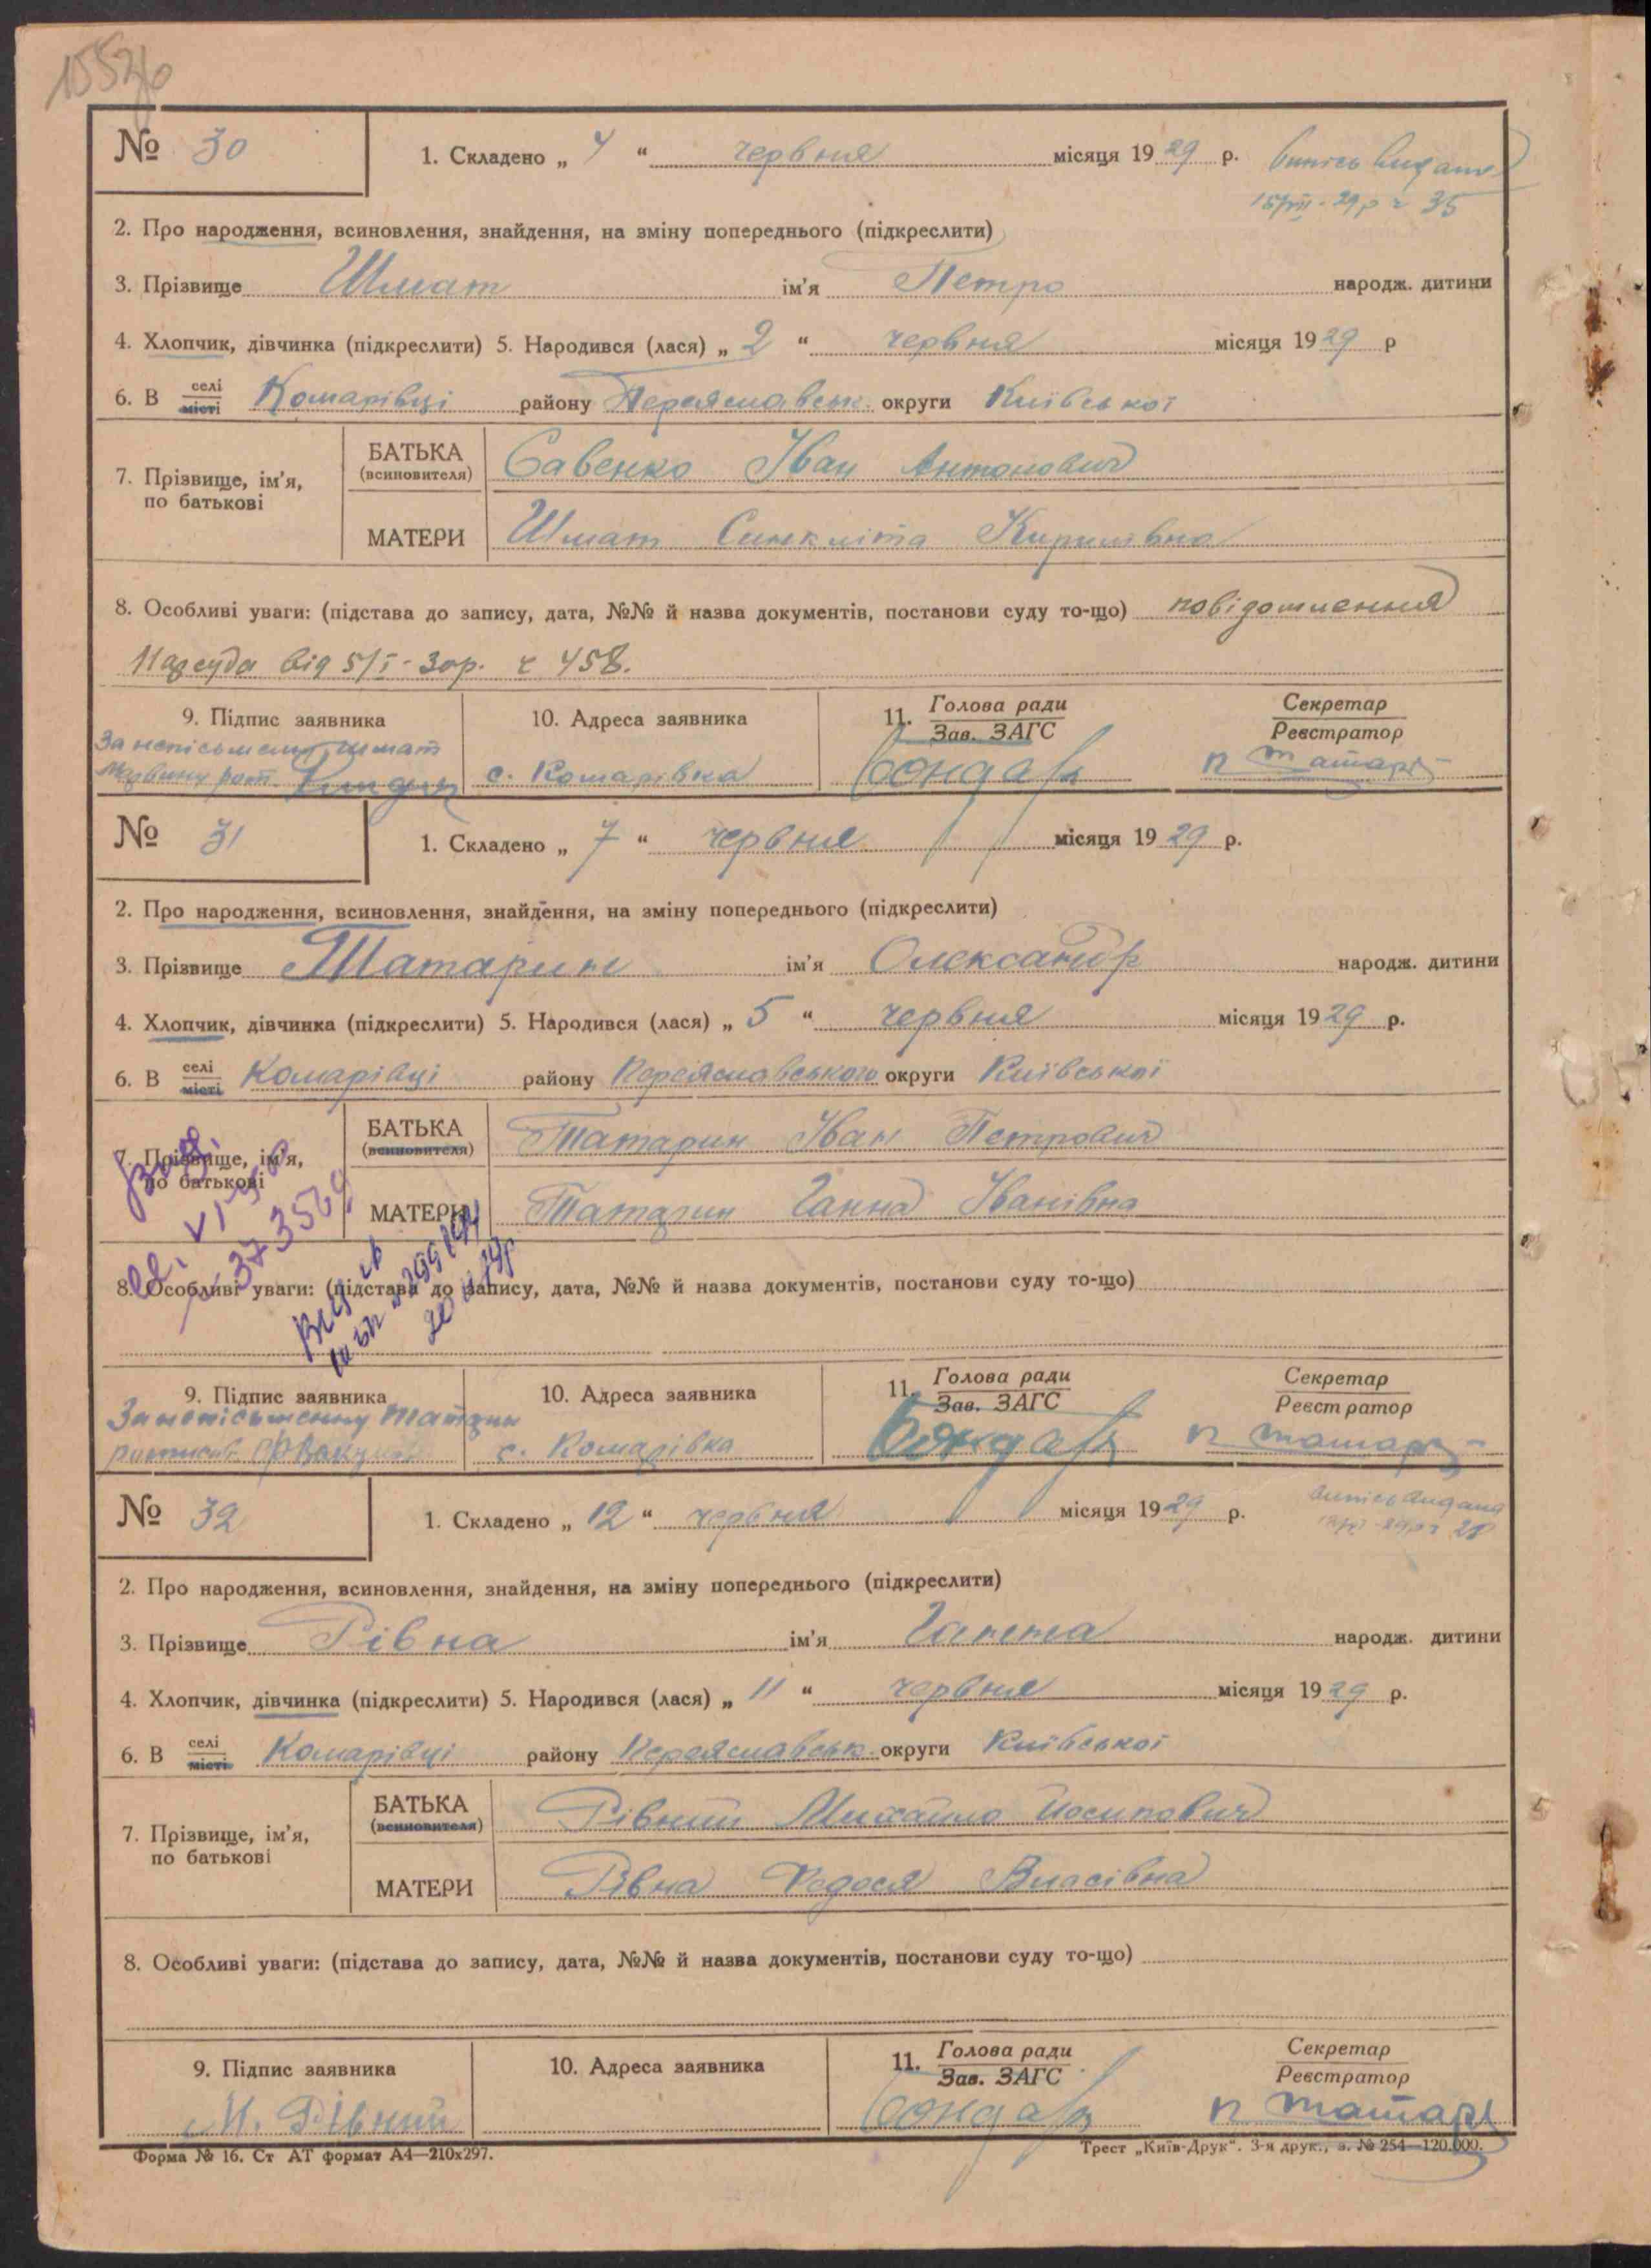 № 30
1. Складено „ 4 “ червня місяця 1929 р. Випись видана
35
2. Про народження, всиновлення, знайдення, на зміну попереднього (підкреслити)
3. Прізвище Шмат ім'я Петро народж. дитини
4. Хлопчик, дівчинка (підкреслити) 5. Народився (лася) „ 2 “ червня місяця 1929 р
6. В селі місті Комарівці району Переяславськ. округи Київської
7. Прізвище, ім'я, по батькові
БАТЬКА (всиновителя) Савенко Іван Антонович
МАТЕРИ Шмат Синкліта Кирилівна
8. Особливі уваги: (підстава до запису, дата, №№ й назва документів, постанови суду то-що) повідомлення
Нарсуда від 5/I-30р. ч 458.
9. Підпис заявника
10. Адреса заявника
11. Голова ради Зав. ЗАГС
Секретар Реєстратор
За неписьменну Шмат
с. Комарівка
Бондар
№ 31
1. Складено „ 7 “ червня місяця 1929 р.
2. Про народження, всиновлення, знайдення, на зміну попереднього (підкреслити)
3. Прізвище Татарин ім'я Олександр народж. дитини
4. Хлопчик, дівчинка (підкреслити) 5. Народився (лася) „ 5 “ червня місяця 1929 р.
6. В селі місті Комарівці району Переяславського округи Київської
7. Прізвище, ім'я, по батькові
БАТЬКА (всиновителя) Татарин Іван Петрович
МАТЕРИ Татарин Ганна Іванівна
8. Особливі уваги: (підстава до запису, дата, №№ й назва документів, постанови суду то-що)
9. Підпис заявника
10. Адреса заявника
11. Голова ради Зав. ЗАГС
Секретар Реєстратор
За неписьменну Татарин
с. Комарівка
Бондар
№ 32
1. Складено „ 12 “ червня місяця 1929 р. Випись видана
28
2. Про народження, всиновлення, знайдення, на зміну попереднього (підкреслити)
3. Прізвище Рівна ім'я Ганна народж. дитини
4. Хлопчик, дівчинка (підкреслити) 5. Народився (лася) „ 11 “ червня місяця 1929 р.
6. В селі місті Комарівці району Переяславськ. округи Київської
7. Прізвище, ім'я, по батькові
БАТЬКА (всиновителя) Рівний Михайло Йосипович
МАТЕРИ Рівна Федося Власівна
8. Особливі уваги: (підстава до запису, дата, №№ й назва документів, постанови суду то-що)
9. Підпис заявника
10. Адреса заявника
11. Голова ради Зав. ЗАГС
Секретар Реєстратор
М. Рівний
Бондар
Форма № 16. Ст АТ формат А4—210х297.
Трест „Київ-Друк“. 3-я друк., з. № 254—120.000.